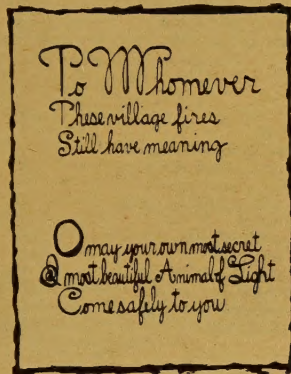 To Whomever
These village fires
Still have meaning
O may your own most secret
& most beautiful Animal of Light
Come safely to you